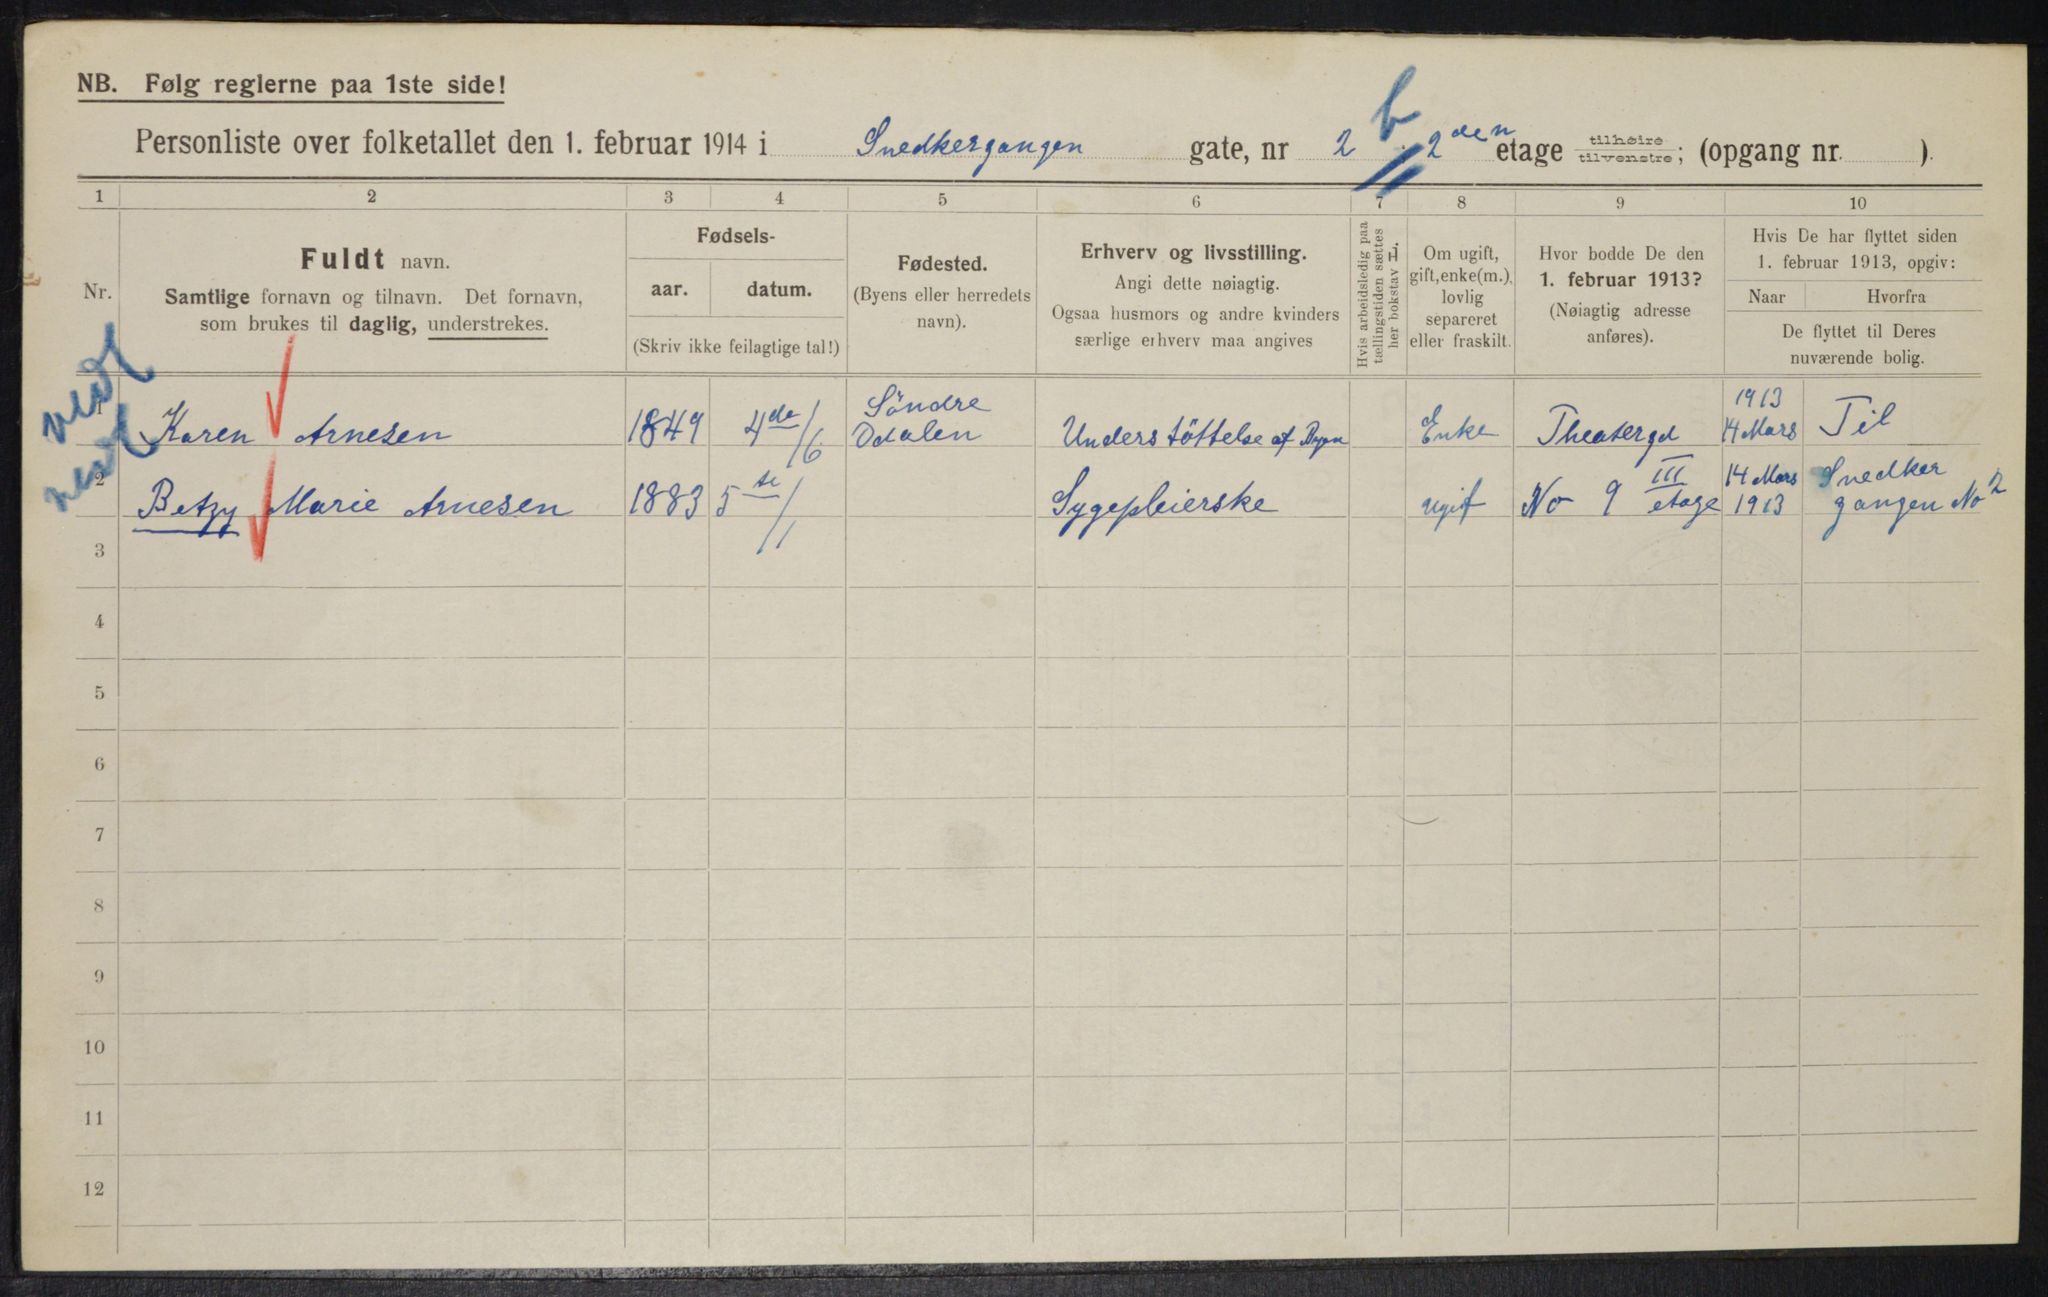 NB. Følg reglerne paa 1ste side!
Personliste over folketallet den 1. februar 1914 i Snedkergangen gate, nr 2 b. 2den etage tilhøire tilvenstre; (opgang nr. ).
1 2 3 4 5 6 7 8 9 10
Nr.
Fuldt navn.
Samtlige fornavn og tilnavn. Det fornavn,
som brukes til daglig, understrekes.
Fødsels-
aar. datum.
(Skriv ikke feilagtige tal!)
Fødested.
(Byens eller herredets
navn).
Erhverv og livsstilling.
Angi dette nøiagtig.
Ogsaa husmors og andre kvinders
særlige erhverv maa angives
Hvis arbeidsledig paa
tællingstiden sættes
her bokstav L.
Om ugift,
gift, enke(m.),
lovlig
separeret
eller fraskilt.
Hvor bodde De den
1. februar 1913?
(Nøiagtig adresse
anføres).
Hvis De har flyttet siden
1. februar 1913, opgiv:
Naar Hvorfra
De flyttet til Deres
nuværende bolig.
1 Karen Arnesen 1849 4de/6 Söndre Odalen Understöttelse af Byen Enke Theatergd 1913 14 Mars Til
2 Betzy Marie Arnesen 1883 5te/1 Sygepleierske ugif No 9 III etage 14 Mars 1913 Snedker gangen No 2
3
4
5
6
7
8
9
10
11
12